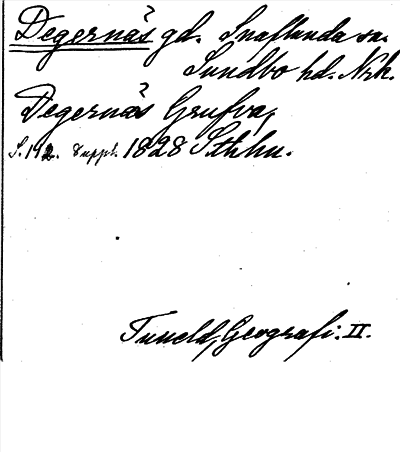 Degernäs gd. Snaflunda sn.
Sundbo hd. Nrk.
Degernäs Grufva,
S. 192. Suppl. 1828 Sthlm.
Tuneld, Geografi: II.